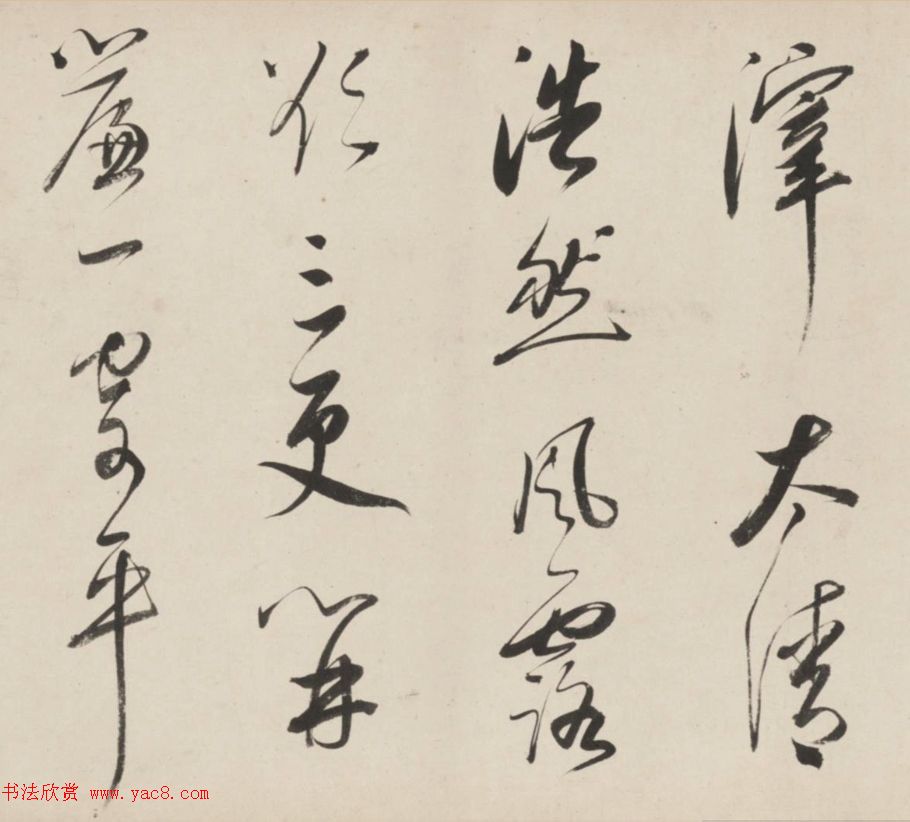 滓太清
浩然風露
欲三更開
簾一寄平
书法欣赏 www.yac8.com